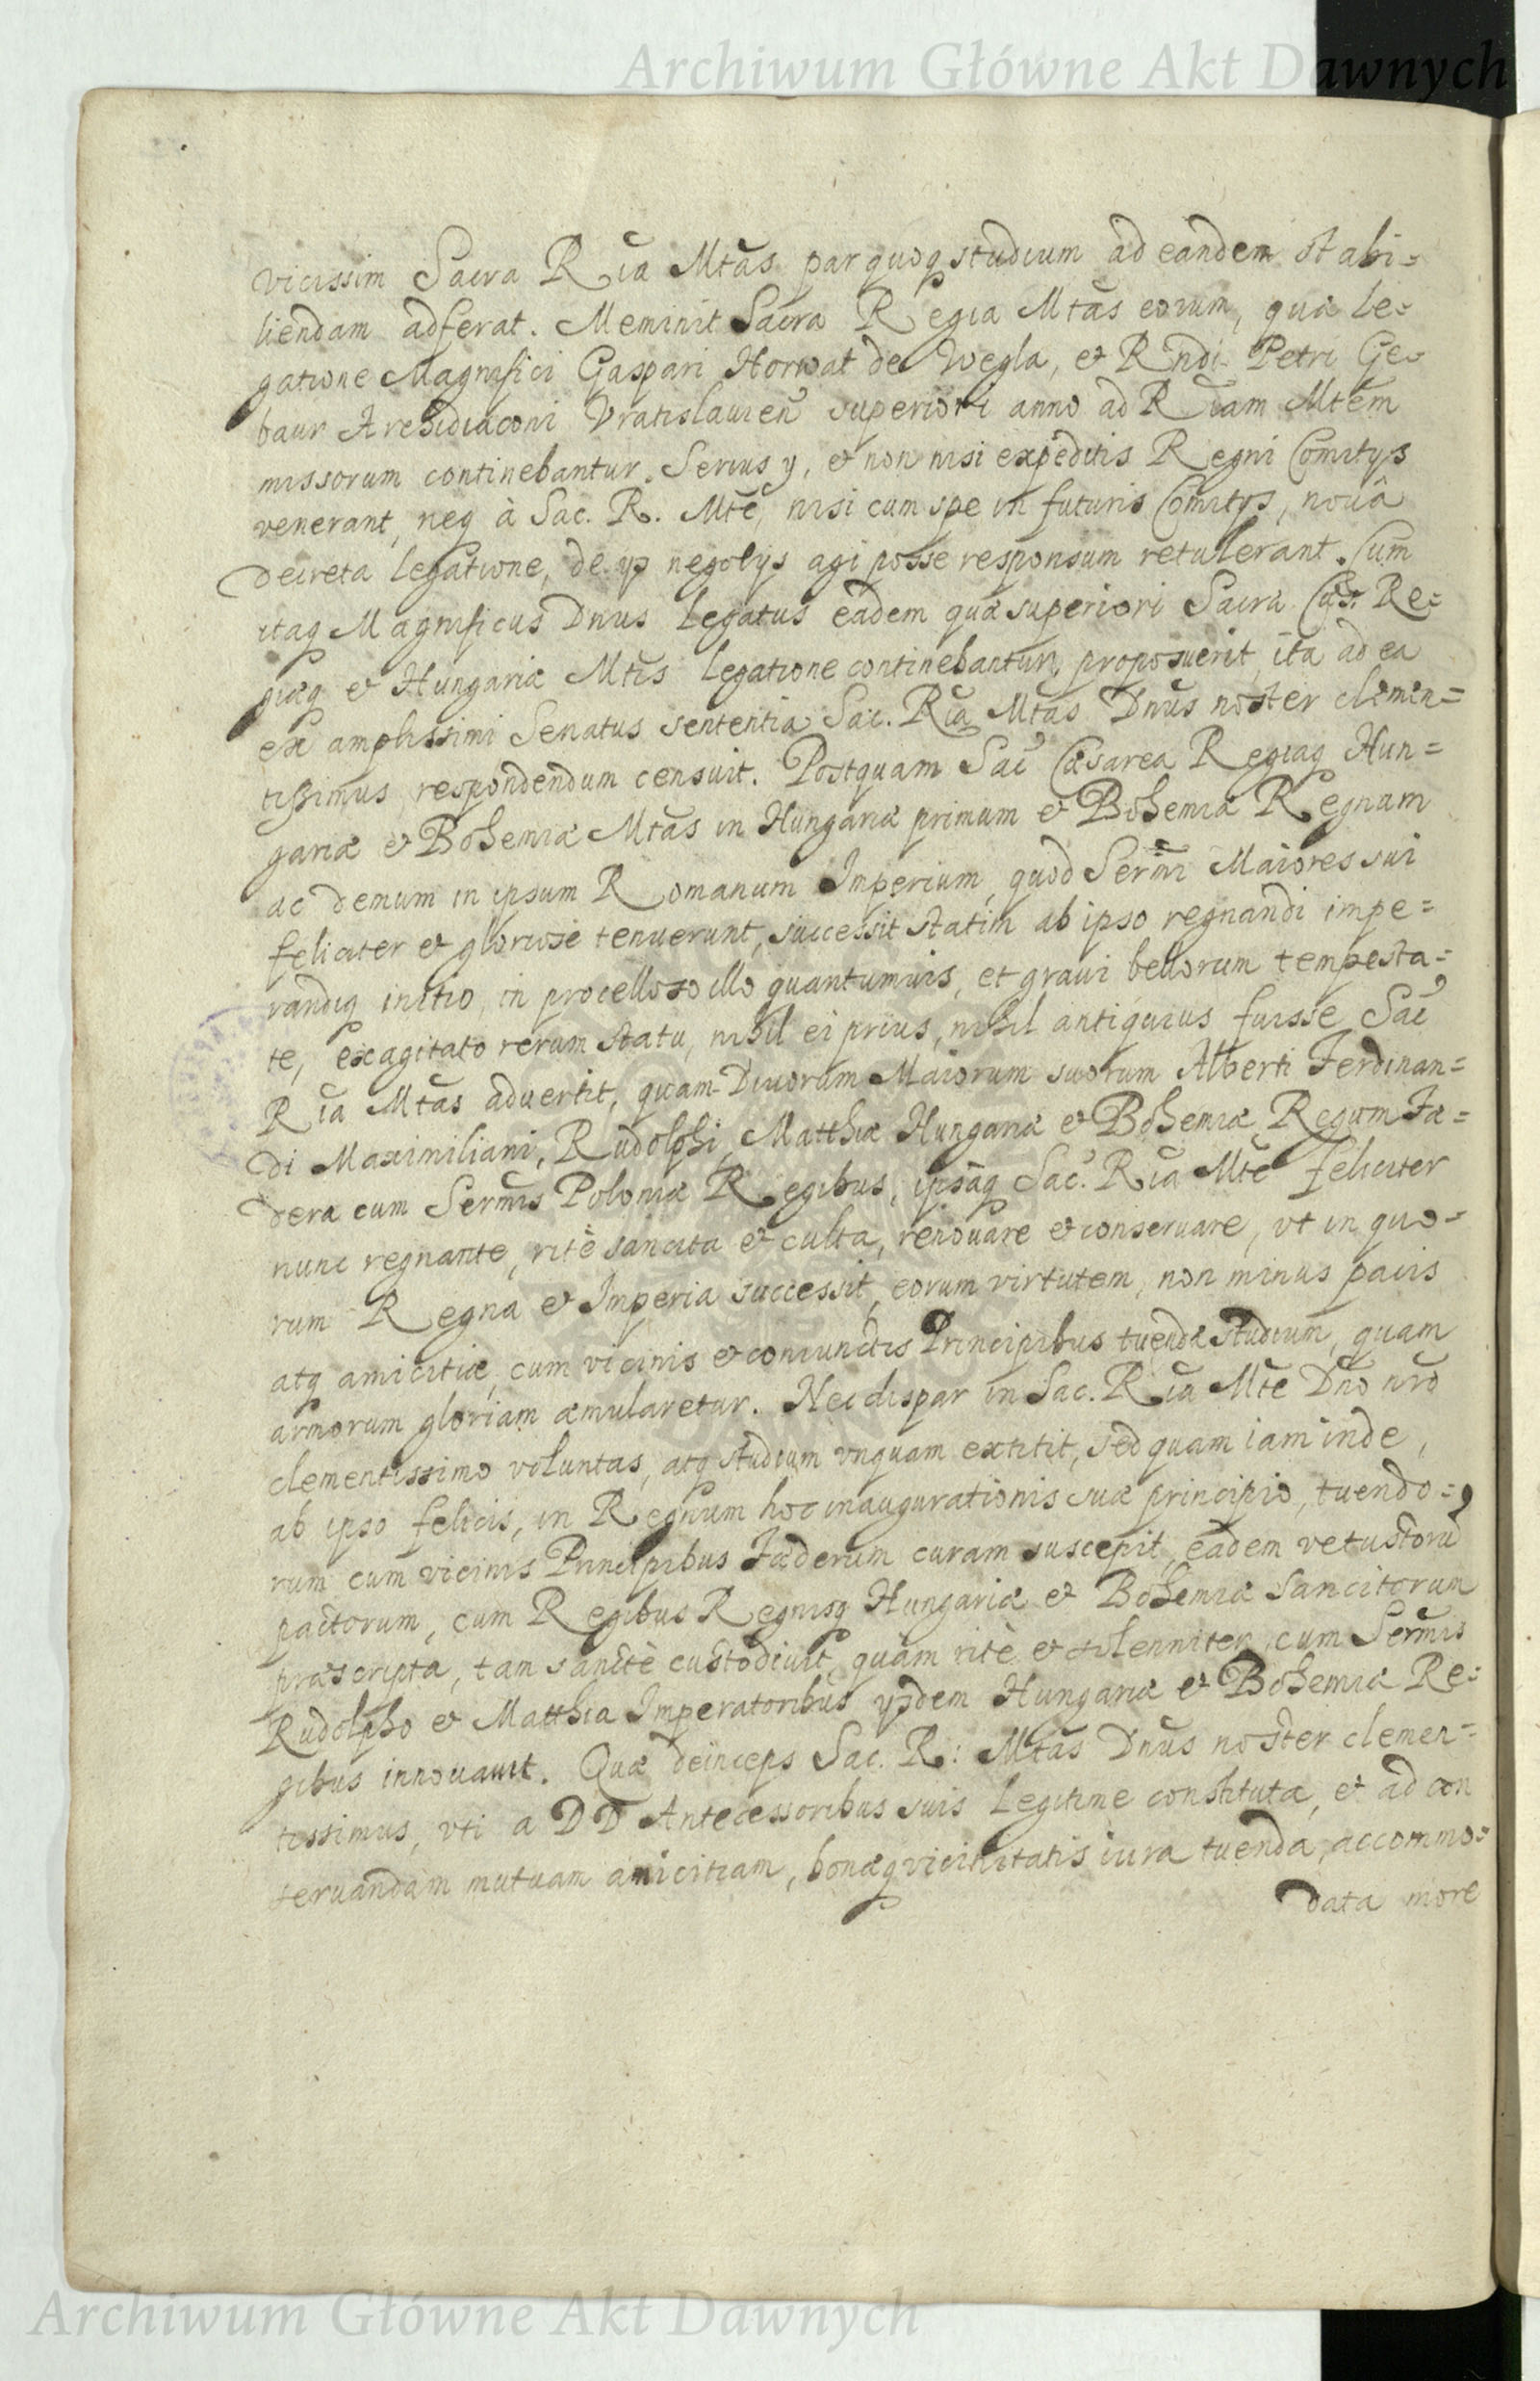 Archiwum Główne Akt Dawnych
vicissim Sacra Ria Mtas par quoq studium ad eandem stabi=
liendam adferat. Meminit Sacra Regia Mtas eorum, quæ Le=
gatione Magnifici Gaspari Horwat de Wegla, et Rndi Petri Ge=
baur Archidiaconi Vratislauien superiori anno ad Riam Mtem
missorum continebantur. Serius ij, et non nisi expeditis Regni Comitijs
venerant, neq à Sac. R. Mte, nisi cum spe in futuris Comitijs, nouâ
decreta legatione, de ijs negotijs agi posse responsum retulerant. Cum
itaq Magnificus Dnus Legatus eadem quæ superiori Sacræ Cæs. Re=
giæq et Hungariæ Mtis legatione continebantur, proposuerit, ita ad ea
ex amplissimi Senatus sententia Sac. Ria Mtas Dnus noster clemen=
tissimus respondendum censuit. Postquam Sac Cæsarea Regiaq Hun=
gariæ et Bohemiæ Mtas in Hungariæ primum et Bohemiæ Regnum
ac demum in ipsum Romanum Imperium, quod Sermi Maiores sui
feliciter et gloriosè tenuerunt, successit statim ab ipso regnandi impe=
randiq initio, in procelloso illo quantumuis, et graui bellorum tempesta=
te, exagitato rerum statu, nihil ei prius, nihil antiquius fuisse Sac
Ria Mtas aduertit, quam Diuorum Maiorum suorum Alberti Ferdinan=
di Maximiliani, Rudolphi, Matthiæ Hungariæ et Bohemiæ Regum Fæ=
dera cum Sermis Poloniæ Regibus, ipsaq Sac. Ria Mte feliciter
nunc regnante, ritè sancita et culta, renouare et conseruare, vt in quo=
rum Regna et Imperia successit, eorum virtutem, non minus pacis
atq amicitiæ, cum vicinis et coniunctis Principibus tuendæ studium, quam
armorum gloriam æmularetur. Nec dispar in Sac. Ria Mte Dno nro
clementissimo voluntas, atq studium vnquam extitit, sed quam iam inde,
ab ipso felicis, in Regnum hoc inaugurationis suæ principio, tuendo=
rum cum vicinis Principibus Fæderum curam suscepit, eadem vetustoru
pactorum, cum Regibus Regnisq Hungariæ et Bohemiæ sancitorum
præscripta, tam sanctè custodiuit, quàm ritè et solenniter, cum Sermis
Rudolpho et Matthia Imperatoribus ijsdem Hungariæ et Bohemiæ Re=
gibus innouauit. Quæ deinceps Sac. R: Mtas Dnus noster clemen=
tissimus, vti a DD Antecessoribus suis Legitime constituta, et ad con
seruandam mutuam amicitiam, bonæq vicinitatis iura tuenda, accommo=
data more
Archiwum Główne Akt Dawnych